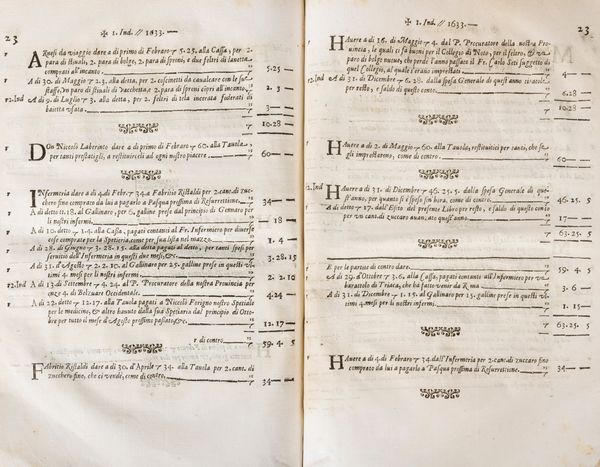 23
✠ 1. Ind. // 1633. —
ARnesi da viaggio dare a dì primo di Febraro ɤ 5.25. alla Cassa, per 2.
para di stiuali, 2. para di bolge, 2. para di speroni, e due feltri di lanetta
comprati all'incanto. 5.25
A dì 30. di Maggio ɤ 2.3. alla detta, per 2. coscinetti da caualcare con le
staffe, un paro di stiuali di vacchetta e 2. para di speroni cipri all'incanto. 2. 3
12. Ind A dì 9. di Luglio ɤ 3. alla detta, per 2. feltri di tela incerata foderati di
baietta usata. 3
ɤ 10.28
DOn Nicolò Laberinto dare a dì primo di Febraro ɤ 60. alla Tauola,
per tanti prestatigli, a restituirceli ad ogni nostro piacere. 60
INfermeria dare a dì 4. di Febr. ɤ 34. a Fabritio Ristaldi per 2. cant. di zuc-
chero fino comprato da lui a pagarlo a Pasqua prossima di Resurrettione. 34
A dì detto ɤ 18. al Gallinaro, per 6. galline prese dal principio di Gennaro per
li nostri infermi. 18
A dì 10. detto ɤ 1.4. alla Cassa, pagati contanti al Fr. Infermiero per diuerse
cose comprate per la Spetieria, come per sua lista nel mazzo. 1. 4
A dì 28. di Giugno ɤ 3.28.15. alla detta pagati al detto, per tanti spesi per
seruitio dell'Infermeria in questi due mesi, &c. 3.28.15
A dì 31. d'Agosto ɤ 2.2.10. al Gallinaro per 25. galline prese in questi vl-
timi 4. mesi per li nostri infermi. 2. 2.10
12. Ind A dì 13. di Settembre ɤ 4.24. al P. Procuratore della nostra Prouincia per
onze 4. di Belzuare Occidentale. 4.24
A dì 22. detto ɤ 12.17. alla Tauola pagati a Nicolò Ferigno nostro Spetiale
per le medicine, & altro hauuto dalla sua Spetiaria dal principio di Otto-
bre per tutto il mese d'Agosto prossimo passato, &c. 12.17
r di contro, ɤ 59. 4. 5
FAbritio Ristaldi dare a dì 30. d'Aprile ɤ 34. alla Tauola per 2. cant. di
zucchero fino, che ci vendè, come di contro. 34
✠ 1. Ind. // 1633. —
23
HAuere a dì 16. di Maggio ɤ 4. dal P. Procuratore della nostra Pro-
uincia, le quali ci fà buoni per il Collegio di Noto, per il feltro, & vn
paro di bolge nuoue, che perdè l'anno passato il Fr. Carlo Seti suggetto di
quel Collegio, al quale s'erano imprestati. 4
12. Ind A dì 31. di Decembre ɤ 6.28. dalla Spesa Generale di quest'anno tirate
per resto, e saldo di questo conto. 6.28
ɤ 10.28
HAuere a dì 2. di Maggio ɤ 60. alla Tauola, restituitici per tanti, che se
gli imprestarono, come di contro. 60
12. Ind. HAuere a dì 31. di Decembre ɤ 46.25.5. dalla Spesa Generale di que-
st'anno, per quanto si è speso fin'hora, come di contro. 46.25. 5
A dì detto ɤ 17. dall'Esito del presente Libro per resto, e saldo di questo conto
per vn cant. di zuccaro auanzato quest'anno. 17
ɤ 63.25. 5
E per le partite di contro dare. 59. 4. 5
A dì 29. d'Ottobre ɤ 3.6. alla Cassa, pagati contanti all'Infermiero per vn
barattolo di Triaca, che hà fatto venir da Roma 3. 6
A dì 31. di Decembre ɤ 1.15. al Gallinaro per 15. galline prese in questi vl-
timi 4. mesi per li nostri infermi. 1.15
ɤ 63.25. 5
HAuere a dì 4. di Febraro ɤ 34. dall'Infermeria per 2. cant. di zuccaro fino
comprato da lui a pagarlo a Pasqua prossima di Resurrettione. 34